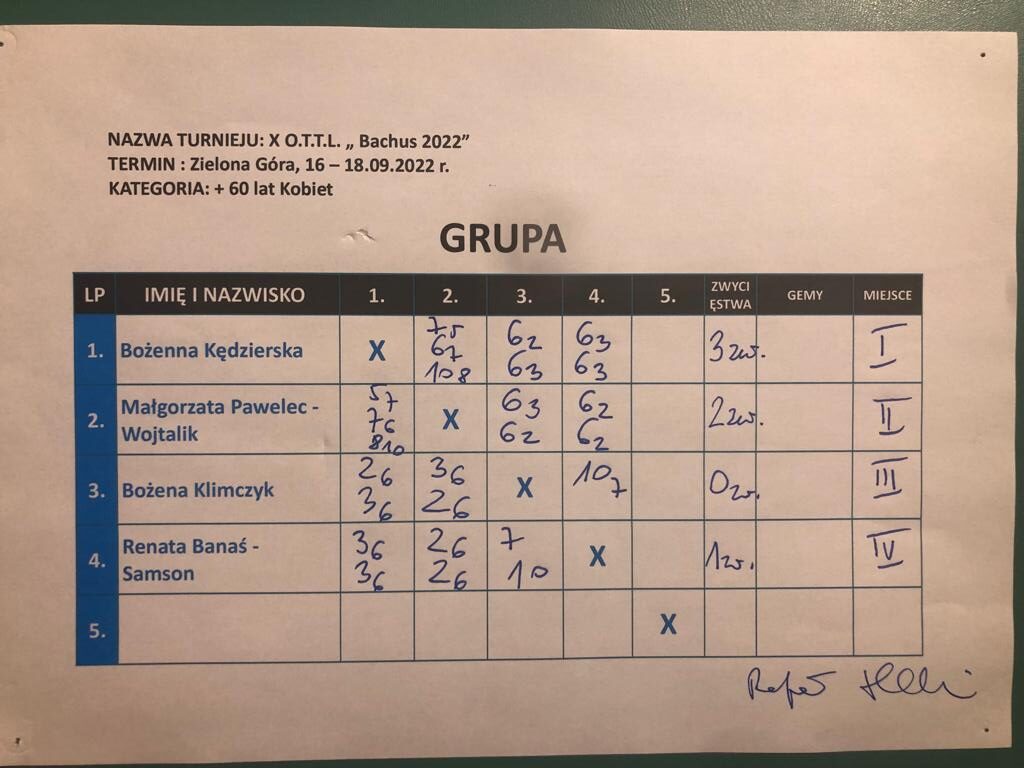 NAZWA TURNIEJU: X O.T.T.L. „ Bachus 2022”
TERMIN : Zielona Góra, 16 – 18.09.2022 r.
KATEGORIA: + 60 lat Kobiet
GRUPA
LP IMIĘ I NAZWISKO 1. 2. 3. 4. 5. ZWYCI ĘSTWA GEMY MIEJSCE
1. Bożenna Kędzierska X 75 67 108 62 63 63 63 3zw. I
2. Małgorzata Pawelec - Wojtalik 57 76 810 X 63 62 62 62 2zw. II
3. Bożena Klimczyk 26 36 36 26 X 107 0zw. III
4. Renata Banaś - Samson 36 36 26 26 7 10 X 1zw. IV
5. X
Rafał